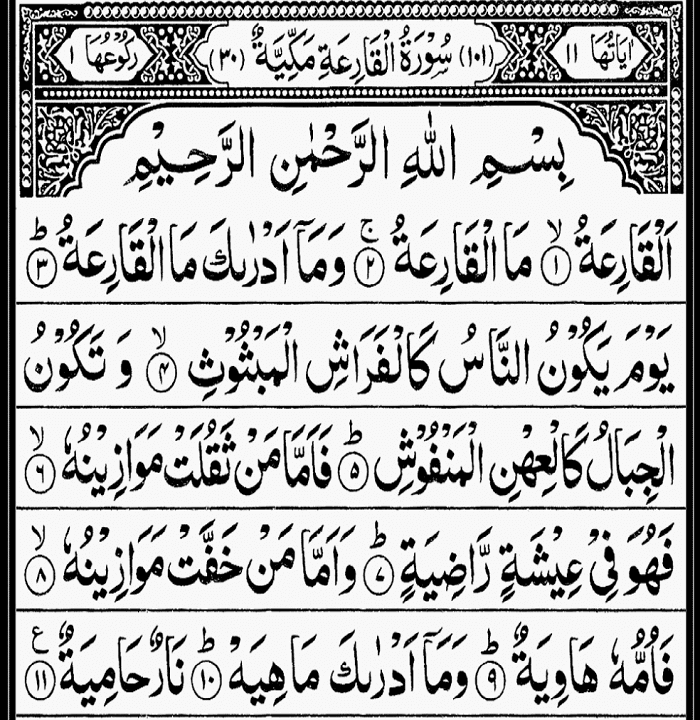 اٰيَاتُهَا ۱۱ (۱۰۱) سُوْرَةُ الْقَارِعَةِ مَكِّيَّةٌ (۳۰) رُكُوْعُهَا ۱
بِسْمِ اللّٰهِ الرَّحْمٰنِ الرَّحِيْمِ
اَلْقَارِعَةُ ۙ﴿۱﴾ مَا الْقَارِعَةُ ۚ﴿۲﴾ وَمَاۤ اَدْرٰىكَ مَا الْقَارِعَةُ ؕ﴿۳﴾
يَوْمَ يَكُوْنُ النَّاسُ كَالْفَرَاشِ الْمَبْثُوْثِ ۙ﴿۴﴾ وَ تَكُوْنُ
الْجِبَالُ كَالْعِهْنِ الْمَنْفُوْشِ ؕ﴿۵﴾ فَاَمَّا مَنْ ثَقُلَتْ مَوَازِيْنُهٗ ۙ﴿۶﴾
فَهُوَ فِيْ عِيْشَةٍ رَّاضِيَةٍ ؕ﴿۷﴾ وَاَمَّا مَنْ خَفَّتْ مَوَازِيْنُهٗ ۙ﴿۸﴾
فَاُمُّهٗ هَاوِيَةٌ ؕ﴿۹﴾ وَمَاۤ اَدْرٰىكَ مَا هِيَهْ ؕ﴿۱۰﴾ نَارٌ حَامِيَةٌ ۧ﴿۱۱﴾